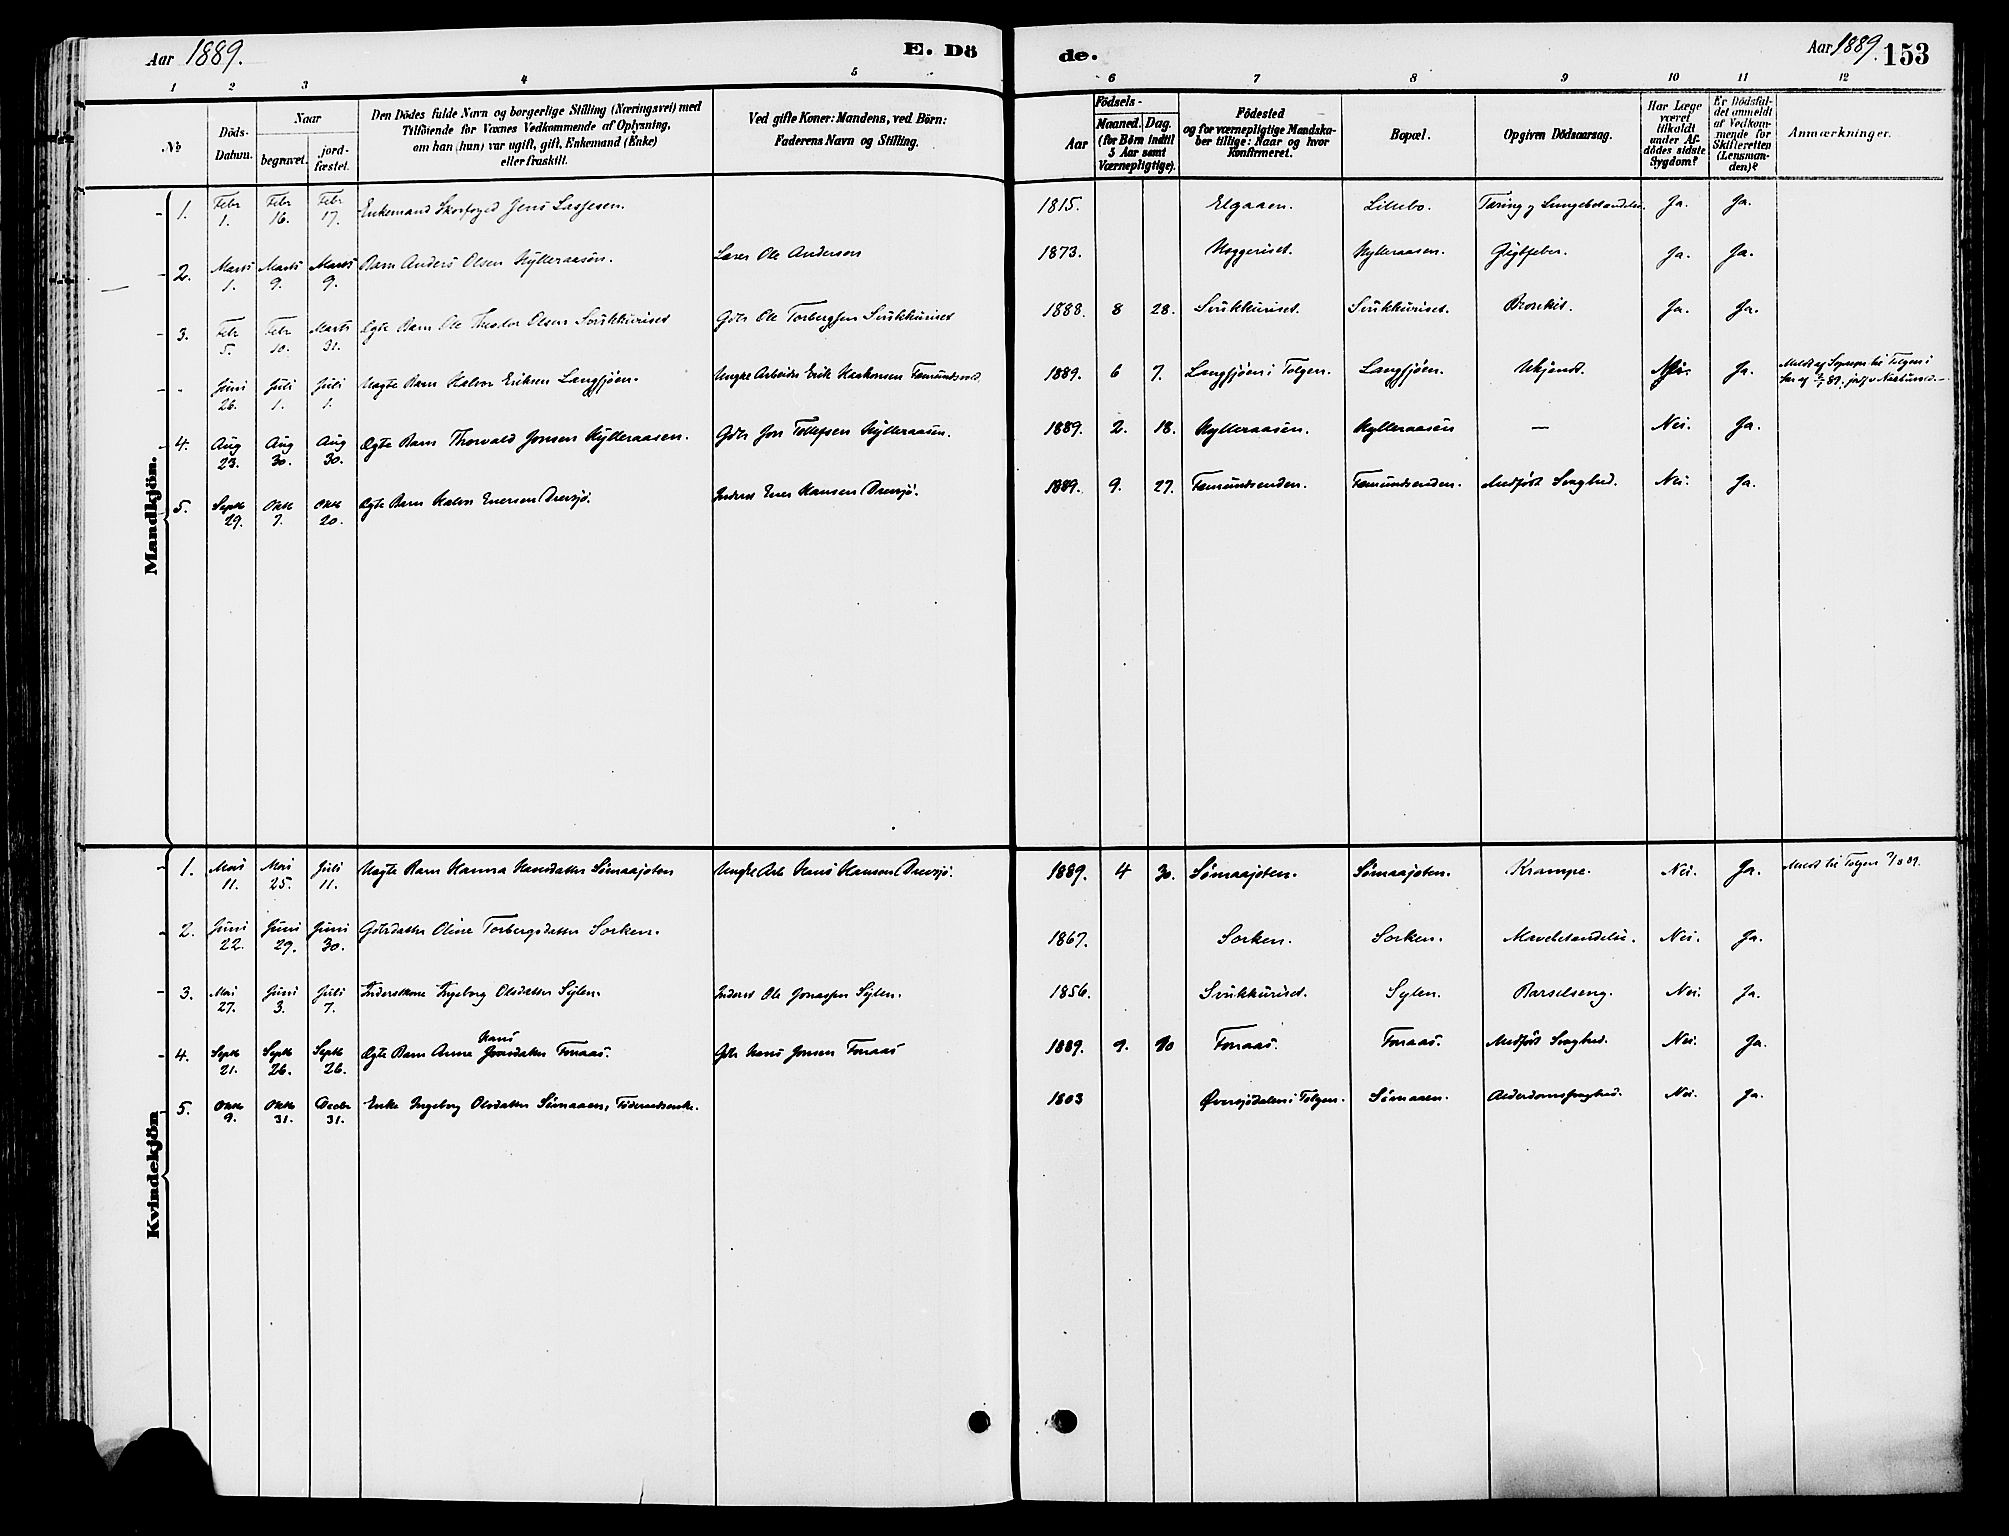 Aar 1889.
E. Dö
de.
Aar 1889. 153
1 2 3 4 5 6 7 8 9 10 11 12
No
Döds-
Datum.
Naar
begravet.
jord-
fæstet.
Den Dödes fulde Navn og borgerlige Stilling (Næringsvei) med
Tilföiende for Voxnes Vedkommende af Oplysning,
om han (hun) var ugift, gift, Enkemand (Enke)
eller fraskilt.
Ved gifte Koner: Mandens, ved Börn:
Faderens Navn og Stilling.
Födsels-
Aar
Maaned. Dag.
(for Börn indtil
5 Aar samt
Værnepligtige).
Födested
og for værnepligtige Mandska-
ber tillige: Naar og hvor
Konfirmeret.
Bopæl.
Opgiven Dödsaarsag.
Har Læge
været
tilkaldt
under Af-
dödes sidste
Sygdom?
Er Dödsfal-
det anmeldt
af Vedkom-
mende for
Skifteretten
(Lensman-
den)?
Anmærkninger.
Mandkjön.
1. Febr 1. Febr 16. Febr 17. Enkemand Skovfoged Jens Lassesen. 1815. Elgaaen. Lillebo. Tæring og Lungebetændelse. Ja. Ja.
2. Marts 1. Marts 9. Marts 9. Barn Anders Olsen Hylleraasen. Lærer Ole Andersen 1873. Høggeriset. Hylleraasen. Gigtfeber. Ja. Ja.
3. Febr 5. Febr 10. Marts 31. Ægte Barn Ole Theodor Olsen Svukkuriset Gdbr Ole Torbergsen Svukkuriset 1888. 8 28. Svukkuriset. Svukkuriset. Bronkit. Ja. Ja.
" Juni 26. Juli 1. Juli 1. Uægte Barn Halvor Eriksen Langsjøen. Ungkr Arbeider Erik Haakonsen Femundsend. 1889. 6 7. Langsjøen i Tolgen. Langsjøen. Ukjendt. Nei. Ja. Meldt af Sognepr til Tolgen i
4. Aug 23. Aug 30. Aug 30. Ægte Barn Thorvald Jonsen Hylleraasen. Gdbr Jon Tollefsen Hylleraasen. 1889. 2. 18. Hylleraasen. Hylleraasen — Nei. Ja.
5. Septb 29. Oktb 7. Oktb 20. Ægte Barn Halvor Enersen Drevsjø. Inderst Ener Hansen Drevsjø. 1889. 9. 27. Femundsenden. Femundsenden. Medfødt Svaghed. Nei. Ja.
Kvindekjön
1. Mai 11. Mai 25. Juli 11. Uægte Barn Hanna Hansdatter Sømaajoten Ungkr Arb Hans Hansen Drevsjø. 1889. 4 30. Sømaajoten. Sømaajoten. Krampe. Nei. Ja. Meldt til Tolgen
2. Juni 22. Juni 29. Juni 30. Gdbrdatter Oline Torbergsdatter Sorken. 1867. Sorken. Sorken. Mavebetændelse. Nei. Ja.
3. Mai 27. Juni 3. Juli 7. Inderstkone Ingeborg Olsdatter Sylen. Inderst Ole Jonassen Sylen. 1856. Svukkuriset. Sylen. Barselseng. Nei. Ja.
4. Septb 21. Septb 26. Septb 26. Ægte Barn Anne Hans Jonsdatter Foraas. Gdb Hans Jonsen Foraas 1889. 9. 20 Foraas. Foraas. Medfødt Svaghed. Nei. Ja.
5. Oktb 9. Oktb 31. Decbr 31. Enke Ingeborg Olsdatter Sømaaen, Føderaadsenke. 1803 Øversjødalen i Tolgen. Sømaaen. Alderdomssvaghed. Nei. Ja.